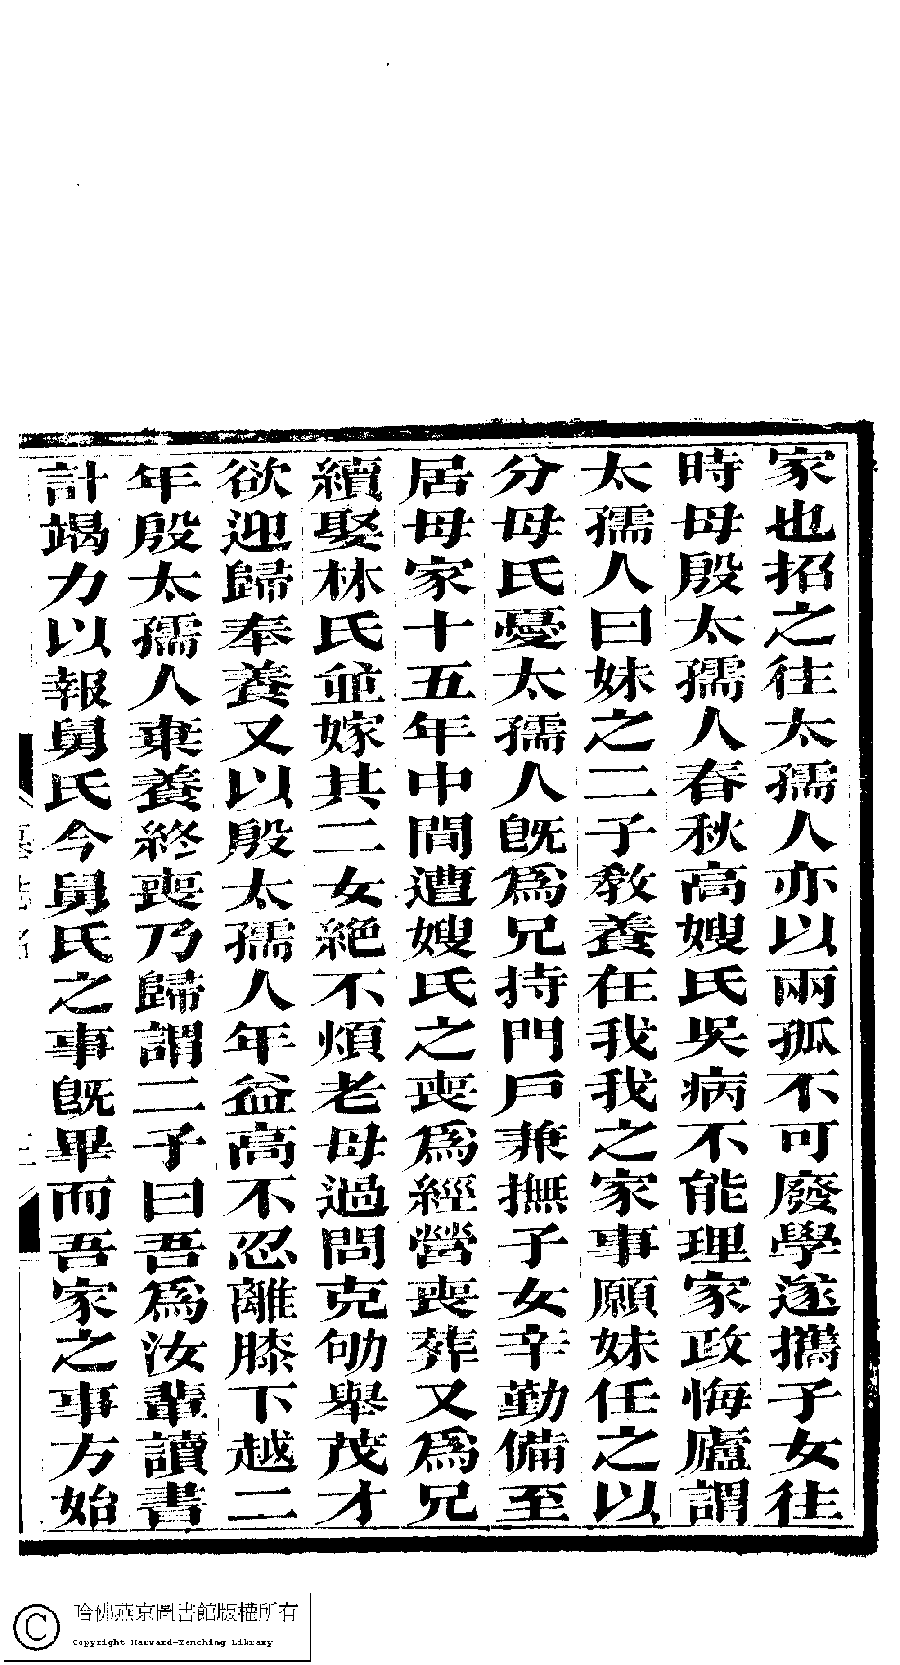 家也招之往太孺人亦以兩孤不可廢學遂攜子女往
時母殷太孺人春秋高嫂氏吳病不能理家政悔廬謂
太孺人曰妹之二子教養在我我之家事願妹任之以
分母氏憂太孺人旣爲兄持門戶兼撫子女辛勤備至
居母家十五年中間遭嫂氏之喪爲經營喪葬又爲兄
續娶林氏並嫁其二女絕不煩老母過問克劬舉茂才
欲迎歸奉養又以殷太孺人年益高不忍離膝下越二
年殷太孺人棄養終喪乃歸謂二子曰吾爲汝輩讀書
計竭力以報舅氏今舅氏之事旣畢而吾家之事方始
哈佛燕京圖書館版權所有
Copyright Harvard-Yenching Library